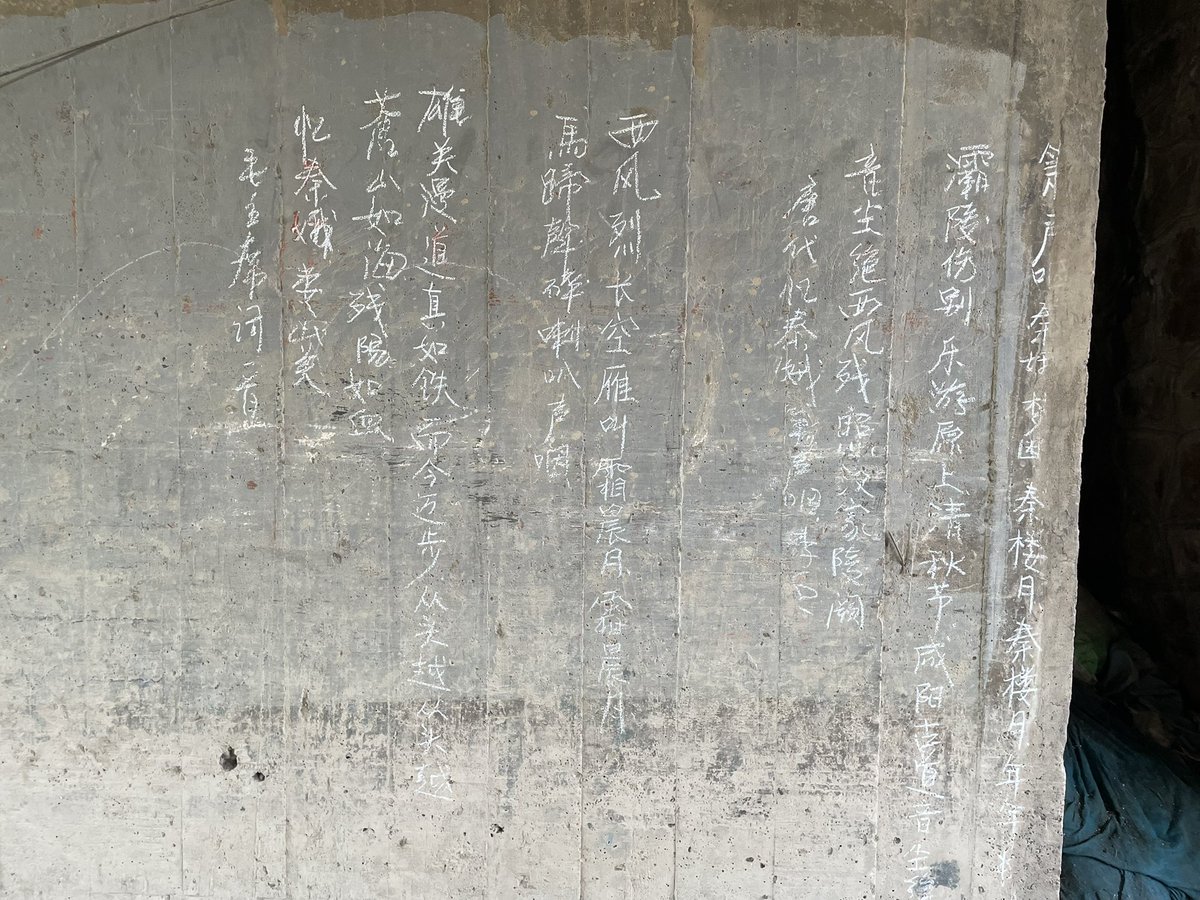 箫声咽 秦娥梦困 秦楼月秦楼月年年
灞陵伤别 乐游原上清秋节 咸阳古道音尘绝
音尘绝西风残照汉家陵阙
唐代忆秦娥箫声咽李白
西风烈长空雁叫霜晨月霜晨月
馬蹄聲碎喇叭声咽
雄关漫道真如铁而今迈步从头越从头越
蒼山如海残陽如血
忆秦娥娄山关
毛主席词一首